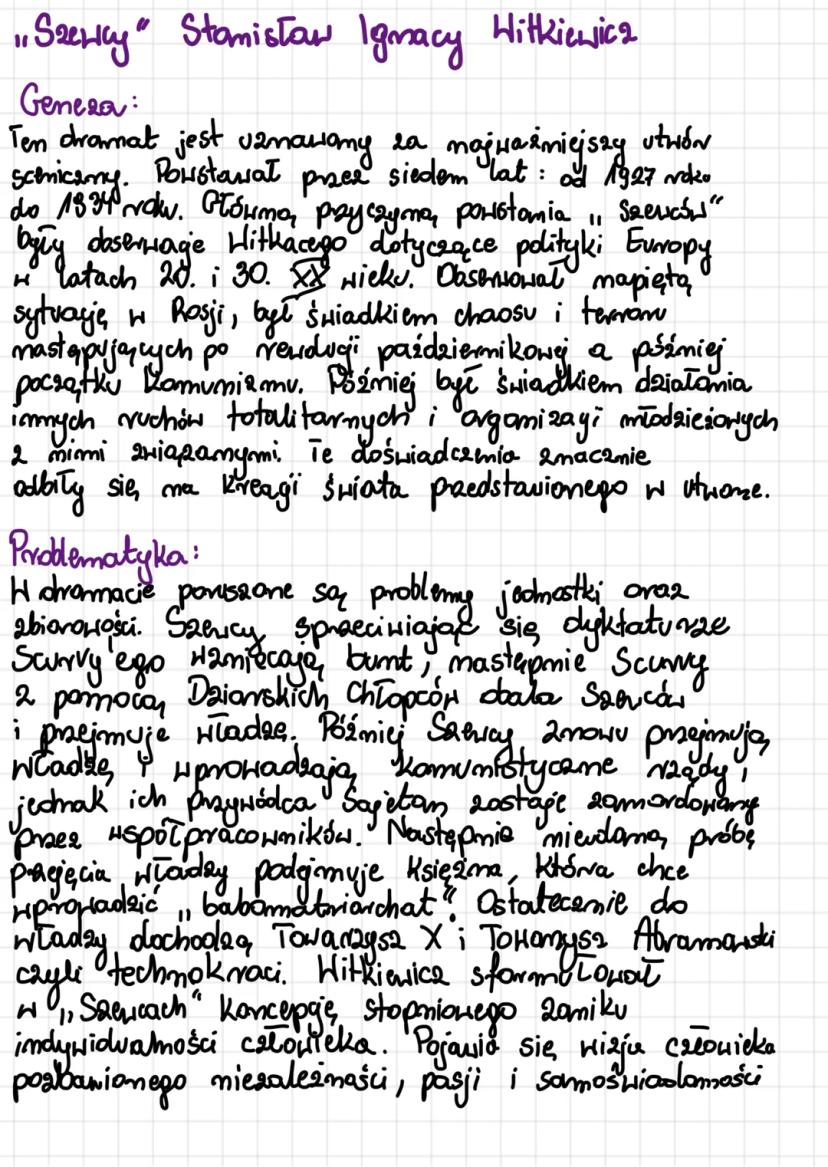 „Szewcy" Stanisław Ignacy Witkiewicz
Geneza:
Ten dramat jest uznawany za najważniejszy utwór
sceniczny. Powstawał przez siedem lat: od 1927 roku
do 1934 roku. Główną przyczyną powstania „Szewców"
były obserwacje Witkacego dotyczące polityki Europy
w latach 20. i 30. XX wieku. Obserwował napiętą
sytuację w Rosji, był świadkiem chaosu i terroru
następujących po rewolucji październikowej a później
początku komunizmu. Później był świadkiem działania
innych ruchów totalitarnych i organizacji młodzieżowych
z nimi związanymi. Te doświadczenia znacznie
odbiły się na kreacji świata przedstawionego w utworze.
Problematyka:
W dramacie poruszone są problemy jednostki oraz
zbiorowości. Szewcy sprzeciwiając się dyktaturze
Scurvy'ego wzniecają bunt, następnie Scurvy
z pomocą Dziarskich Chłopców obala Szewców
i przejmuje władzę. Później Szewcy znowu przejmują
władzę i wprowadzają komunistyczne rządy,
jednak ich przywódca Sajetan zostaje zamordowany
przez współpracowników. Następnie nieudaną próbę
przejęcia władzy podejmuje Księżna, która chce
wprowadzić „babomatriarchat". Ostatecznie do
władzy dochodzą Towarzysz X i Towarzysz Abramowski
czyli technokraci. Witkiewicz sformułował
w „Szewcach" koncepcję stopniowego zaniku
indywidualności człowieka. Pojawia się wizja człowieka
pozbawionego niezależności, pasji i samoświadomości